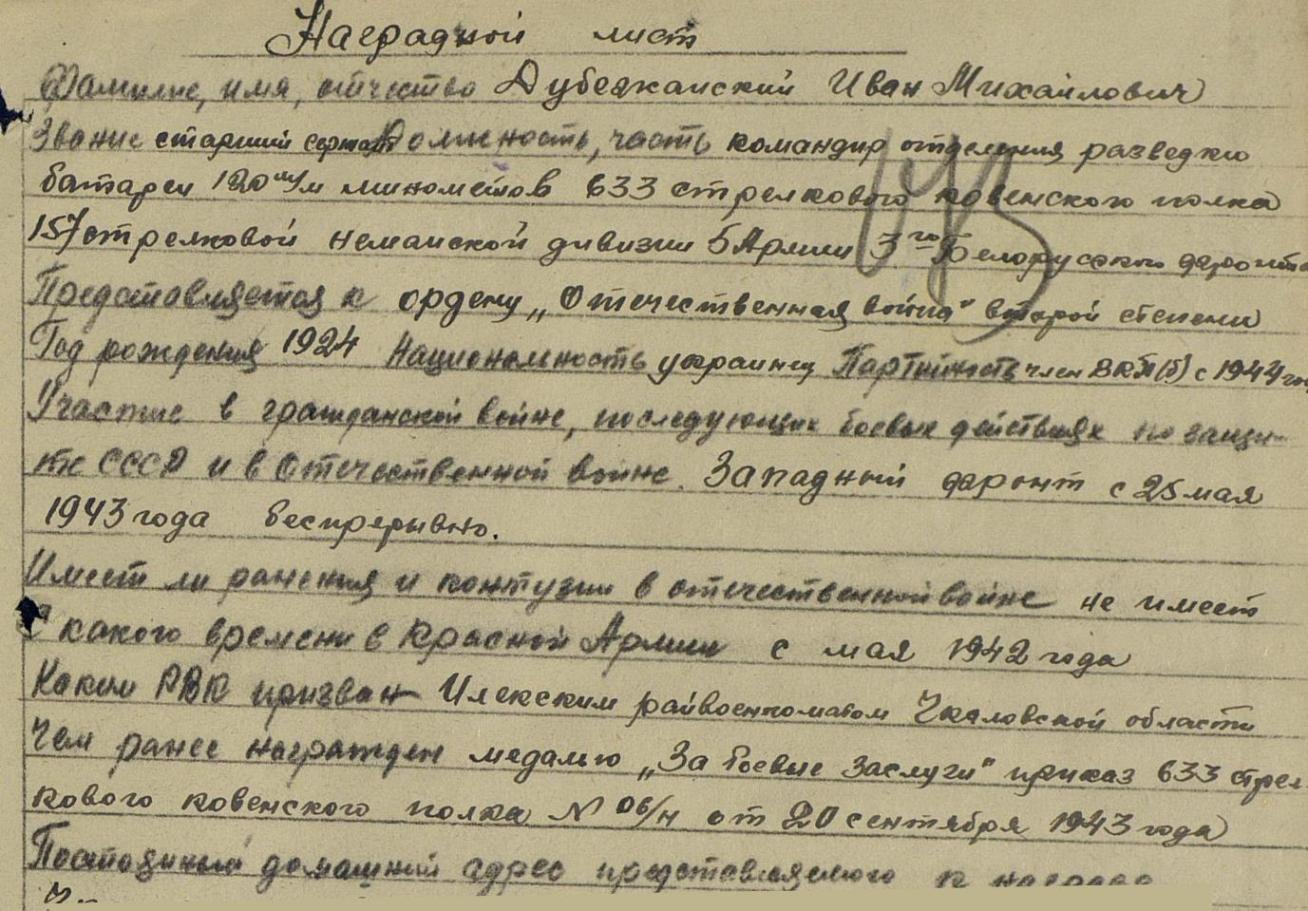 Наградной лист
Фамилие, имя, отчество Дубежанский Иван Михайлович
Звание старший сержант Должность, часть командир отделения разведки
батареи 120 м/м минометов 633 стрелкового ковенского полка
157 стрелковой неманской дивизии 5 Армии 3го Белорусского фронта
Представляется к ордену „Отечественная война" второй степени
Год рождения 1924 Национальность украинец Партийность член ВКП(б) с 1944 год
Участие в гражданской войне, последующих боевых действиях по защи-
те СССР и в Отечественной войне. Западный фронт с 25 мая
1943 года беспрерывно.
Имеет ли ранения и контузии в отечественной войне не имеет
С какого времени в Красной Армии с мая 1942 года
Каким РВК призван Илекским райвоенкоматом Чкаловской области
Чем ранее награжден медалью „За боевые заслуги" приказ 633 стрел
кового ковенского полка N 06/н от 20 сентября 1943 года
Постоянный домашний адрес представляемого к награде